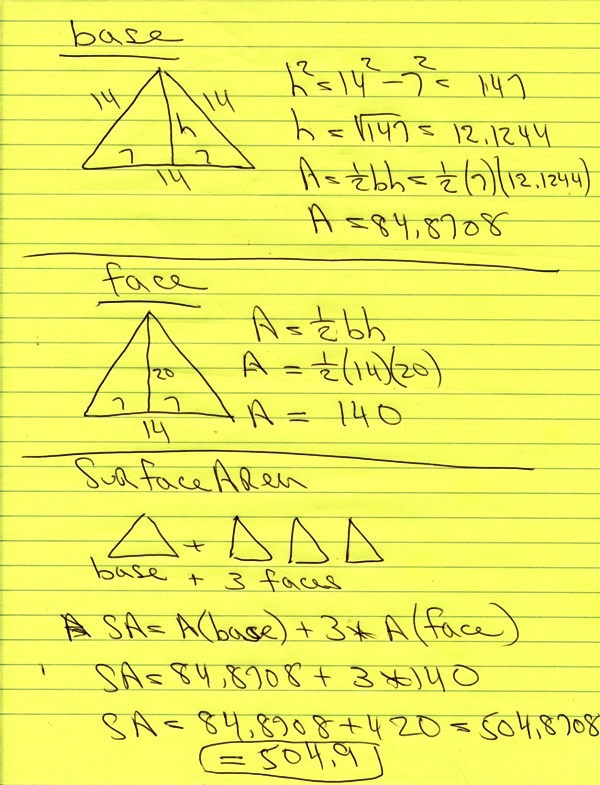 base
14 14
h
7 7
14
h² = 14² - 7² = 147
h = √147 = 12.1244
A = ½bh = ½(7)(12.1244)
A = 84.8708
face
20
7 7
14
A = ½bh
A = ½(14)(20)
A = 140
Surface Area
+
base + 3 faces
SA = A(base) + 3 * A(face)
SA = 84.8708 + 3 * 140
SA = 84.8708 + 420 = 504.8708
= 504.9